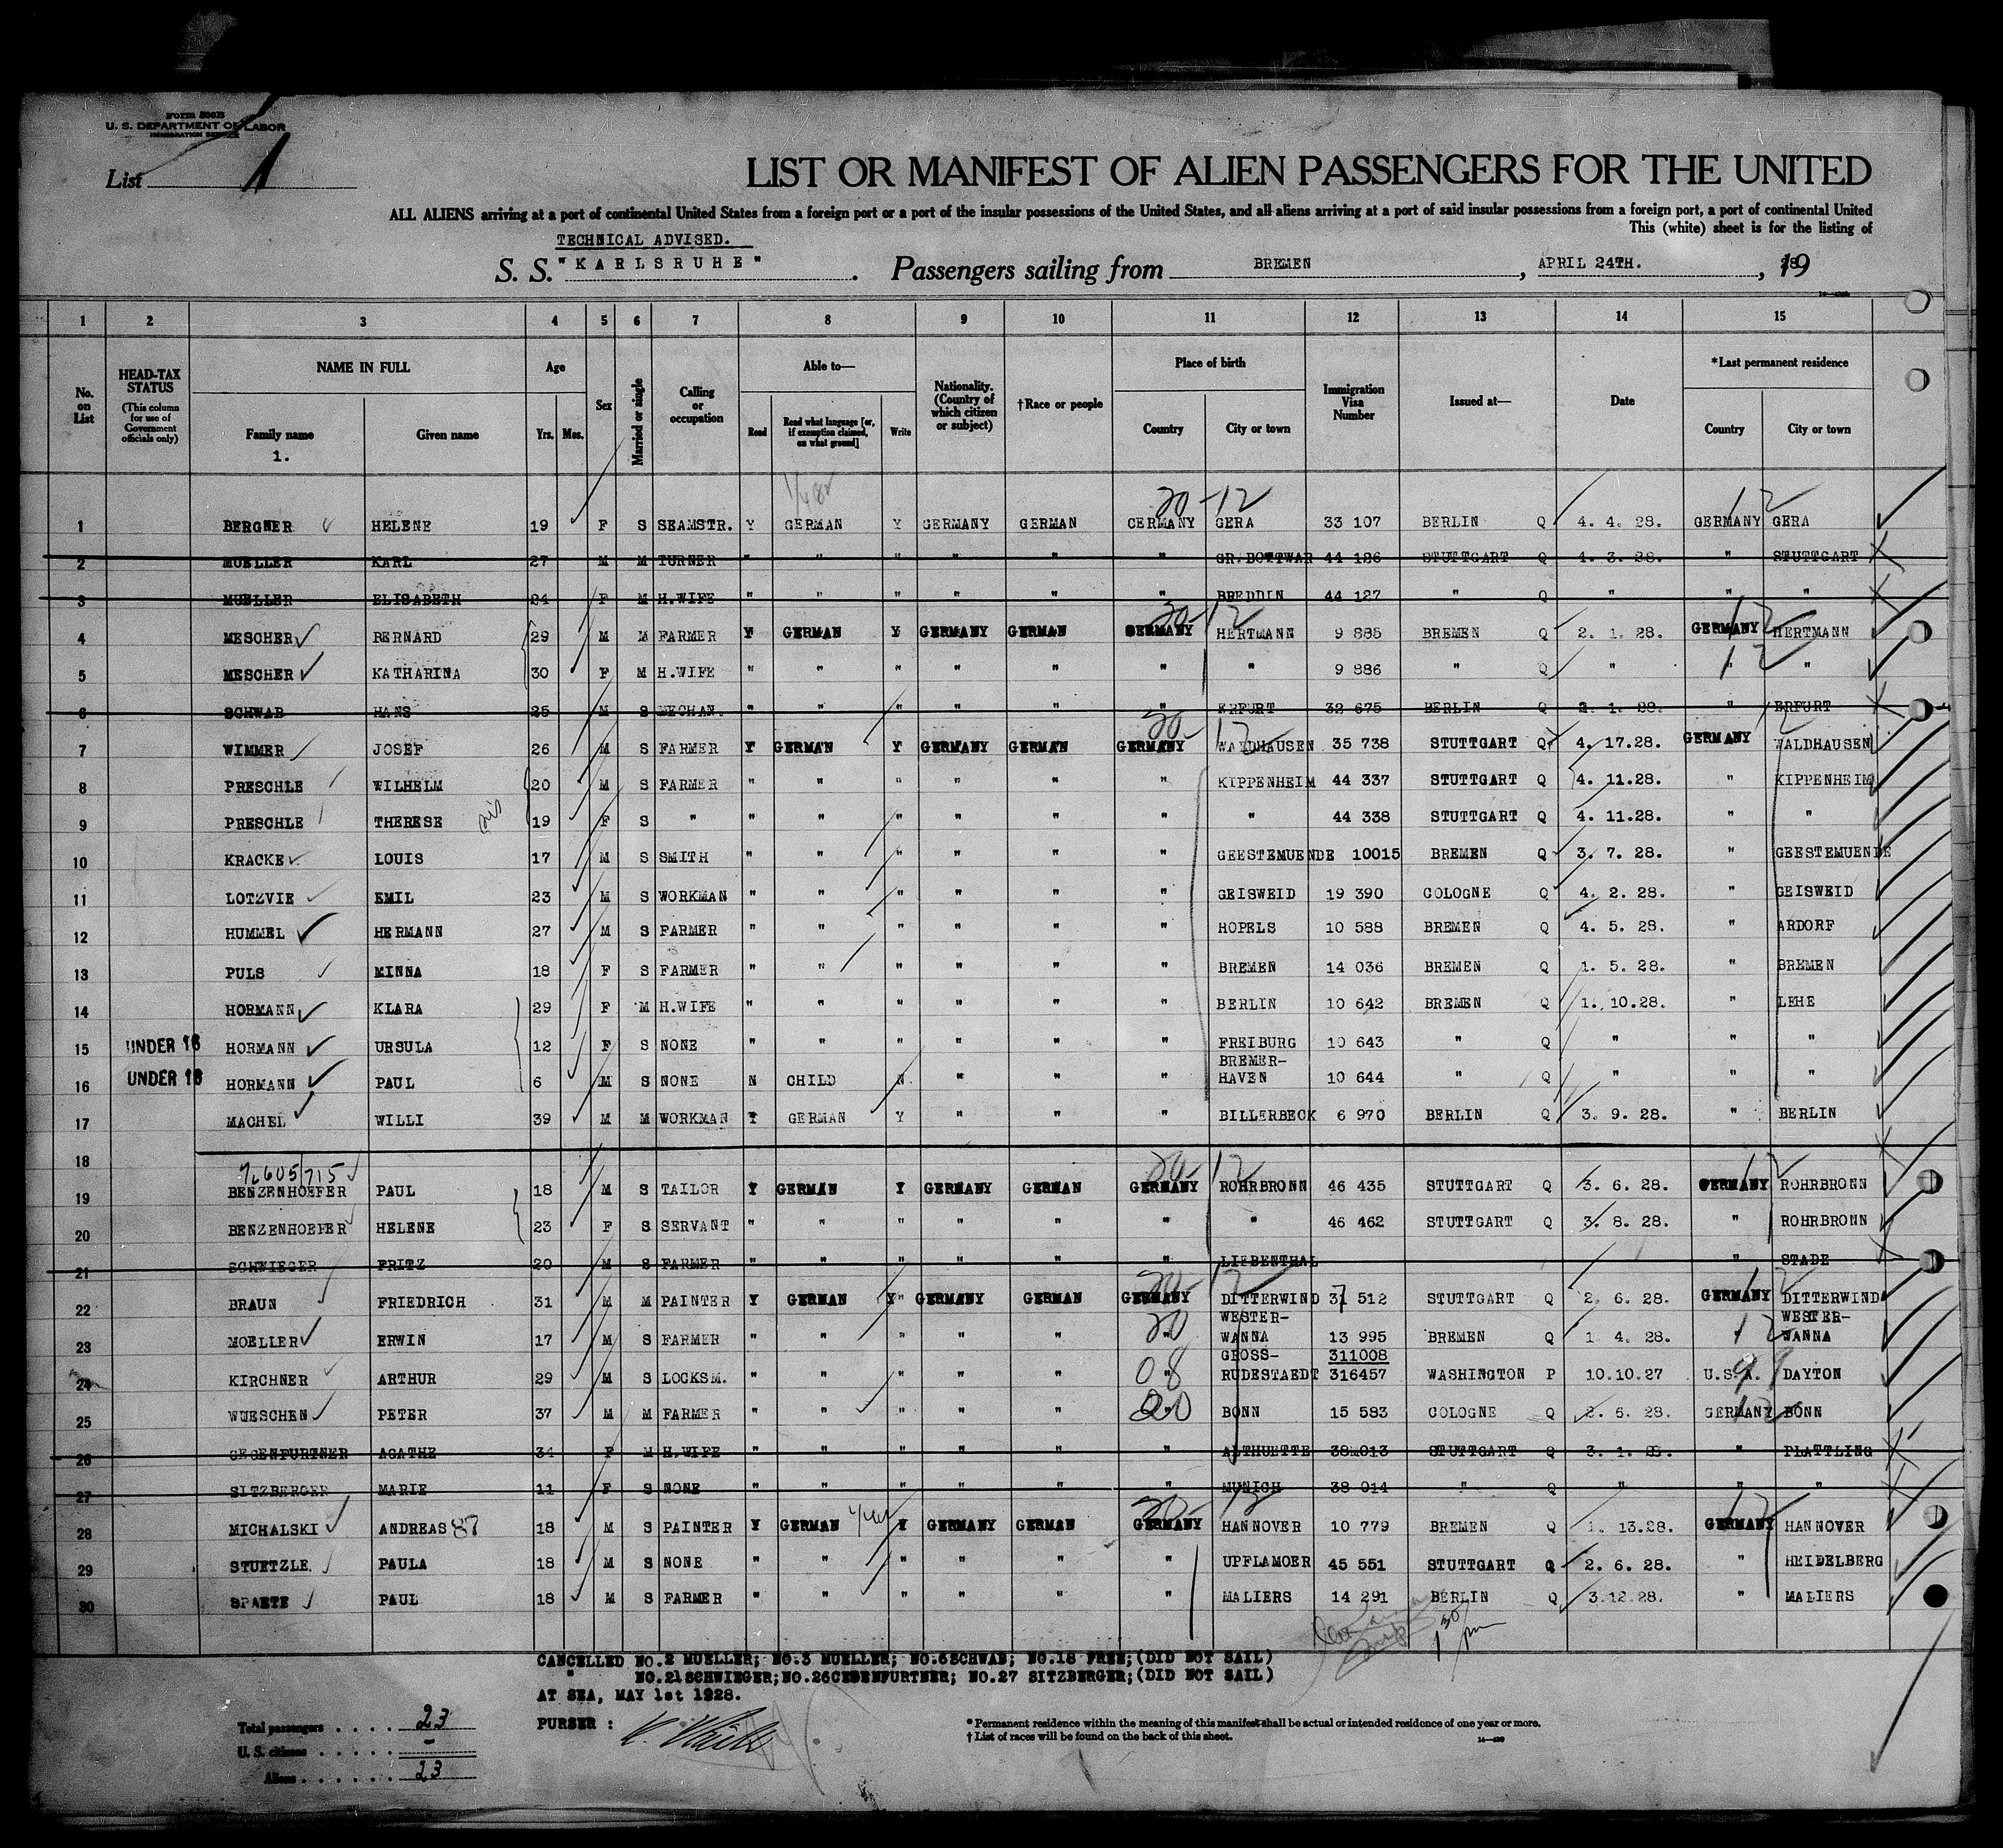 Form 500B
U. S. DEPARTMENT OF LABOR
IMMIGRATION SERVICE
List 1
LIST OR MANIFEST OF ALIEN PASSENGERS FOR THE UNITED
ALL ALIENS arriving at a port of continental United States from a foreign port or a port of the insular possessions of the United States, and all aliens arriving at a port of said insular possessions from a foreign port, a port of continental United
This (white) sheet is for the listing of
TECHNICAL ADVISED.
S. S. "KARLSRUHE" . Passengers sailing from BREMEN , APRIL 24TH. , 1928
1 2 3 4 5 6 7 8 9 10 11 12 13 14 15
No. on List
HEAD-TAX STATUS (This column for use of Government officials only)
NAME IN FULL
Family name Given name
1.
Age Yrs. Mos.
Sex
Married or single
Calling or occupation
Able to— Read Read what language [or, if exemption claimed, on what ground] Write
Nationality. (Country of which citizen or subject)
†Race or people
Place of birth Country City or town
Immigration Visa Number
Issued at—
Date
*Last permanent residence Country City or town
20-12 12
1 BERGNER HELENE 19 F S SEAMSTR. Y GERMAN Y GERMANY GERMAN GERMANY GERA 33 107 BERLIN Q 4. 4. 28. GERMANY GERA
2 MUELLER KARL 27 M M TURNER " " " " " " GR.BOTTWAR 44 126 STUTTGART Q 4. 3. 28. " STUTTGART
3 MUELLER ELISABETH 24 F M H.WIFE " " " " " " BREDDIN 44 127 " Q " " "
20-12 12
4 MESCHER BERNARD 29 M M FARMER Y GERMAN Y GERMANY GERMAN GERMANY HERTMANN 9 885 BREMEN Q 2. 1. 28. GERMANY HERTMANN
5 MESCHER KATHARINA 30 F M H.WIFE " " " " " " " 9 886 " Q " 12 "
6 SCHWAB HANS 25 M S MECHAN. " " " " " " ERFURT 32 675 BERLIN Q 2. 1. 28. " ERFURT
20-12 12
7 WIMMER JOSEF 26 M S FARMER Y GERMAN Y GERMANY GERMAN GERMANY WALDHAUSEN 35 738 STUTTGART Q 4. 17.28. GERMANY WALDHAUSEN
8 PRESCHLE WILHELM 20 M S FARMER " " " " " " KIPPENHEIM 44 337 STUTTGART Q 4. 11.28. " KIPPENHEIM
9 PRESCHLE THERESE sis 19 F S " " " " " " " " 44 338 STUTTGART Q 4. 11.28. " "
10 KRACKE LOUIS 17 M S SMITH " " " " " " GEESTEMUENDE 10015 BREMEN Q 3. 7. 28. " GEESTEMUENDE
11 LOTZVIE EMIL 23 M S WORKMAN " " " " " " GEISWEID 19 390 COLOGNE Q 4. 2. 28. " GEISWEID
12 HUMMEL HERMANN 27 M S FARMER " " " " " " HOPELS 10 588 BREMEN Q 4. 5. 28. " ARDORF
13 PULS MINNA 18 F S FARMER " " " " " " BREMEN 14 036 BREMEN Q 1. 5. 28. " BREMEN
14 HORMANN KLARA 29 F M H.WIFE " " " " " " BERLIN 10 642 BREMEN Q 1. 10.28. " LEHE
15 UNDER 16 HORMANN URSULA 12 F S NONE " " " " " " FREIBURG 10 643 " Q " " "
16 UNDER 16 HORMANN PAUL 6 M S NONE N CHILD N " " " BREMER-HAVEN 10 644 " Q " " "
17 MACHEL WILLI 39 M M WORKMAN Y GERMAN Y " " " BILLERBECK 6 970 BERLIN Q 3. 9. 28. " BERLIN
18
20-12 12
19 BENZENHOEFER PAUL 18 M S TAILOR Y GERMAN Y GERMANY GERMAN GERMANY ROHRBRONN 46 435 STUTTGART Q 3. 6. 28. GERMANY ROHRBRONN
20 BENZENHOEFER HELENE 23 F S SERVANT " " " " " " " 46 462 STUTTGART Q 3. 8. 28. " ROHRBRONN
21 SCHWIEGER FRITZ 20 M S FARMER " " " " " " LIEBENTHAL " STADE
20-12 12
22 BRAUN FRIEDRICH 31 M M PAINTER Y GERMAN Y " GERMANY GERMAN GERMANY DITTERWIND 31 512 STUTTGART Q 2. 6. 28. GERMANY DITTERWIND
23 MOELLER ERWIN 17 M S FARMER " " " " " 20 " WESTER-WANNA 13 995 BREMEN Q 1 4. 28. " 12 WESTER-WANNA
24 KIRCHNER ARTHUR 29 M S LOCKSM. " " " " " 08 " GROSS-RUDESTAEDT 311008 316457 WASHINGTON P 10.10.27 U.S.A. 99 DAYTON
25 WUESCHEN PETER 37 M M FARMER " " " " " 20 " BONN 15 583 COLOGNE Q 2. 6. 28. GERMANY 12 BONN
26 GEGENFURTNER AGATHE 34 F M H.WIFE " " " " " " ALTHUETTE 38 013 STUTTGART Q 3. 1. 28. " PLATTLING
27 SITZBERGER MARIE 11 F S NONE " " " " " " MUNICH 38 014 " Q " " "
20-12 12
28 MICHALSKI ANDREAS 87 18 M S PAINTER Y GERMAN Y GERMANY GERMAN GERMANY HANNOVER 10 779 BREMEN Q 1. 13.28. GERMANY HANNOVER
29 STUETZLE PAULA 18 M S NONE " " " " " " UPFLAMOER 45 551 STUTTGART Q 2. 6. 28. " HEIDELBERG
30 SPAETE PAUL 18 M S FARMER " " " " " " MALIERS 14 291 BERLIN Q 3.12.28. " MALIERS
1 30 pm
CANCELLED NO.2 MUELLER; NO.3 MUELLER; NO.6 SCHWAB; NO.18 FREE; (DID NOT SAIL)
" NO.21 SCHWIEGER; NO.26 GEGENFURTNER; NO.27 SITZBERGER; (DID NOT SAIL)
AT SEA, MAY 1st 1928.
PURSER :
Total passengers . . . . 23
U. S. citizens . . . . . -
Aliens . . . . . . 23
* Permanent residence within the meaning of this manifest shall be actual or intended residence of one year or more.
† List of races will be found on the back of this sheet.